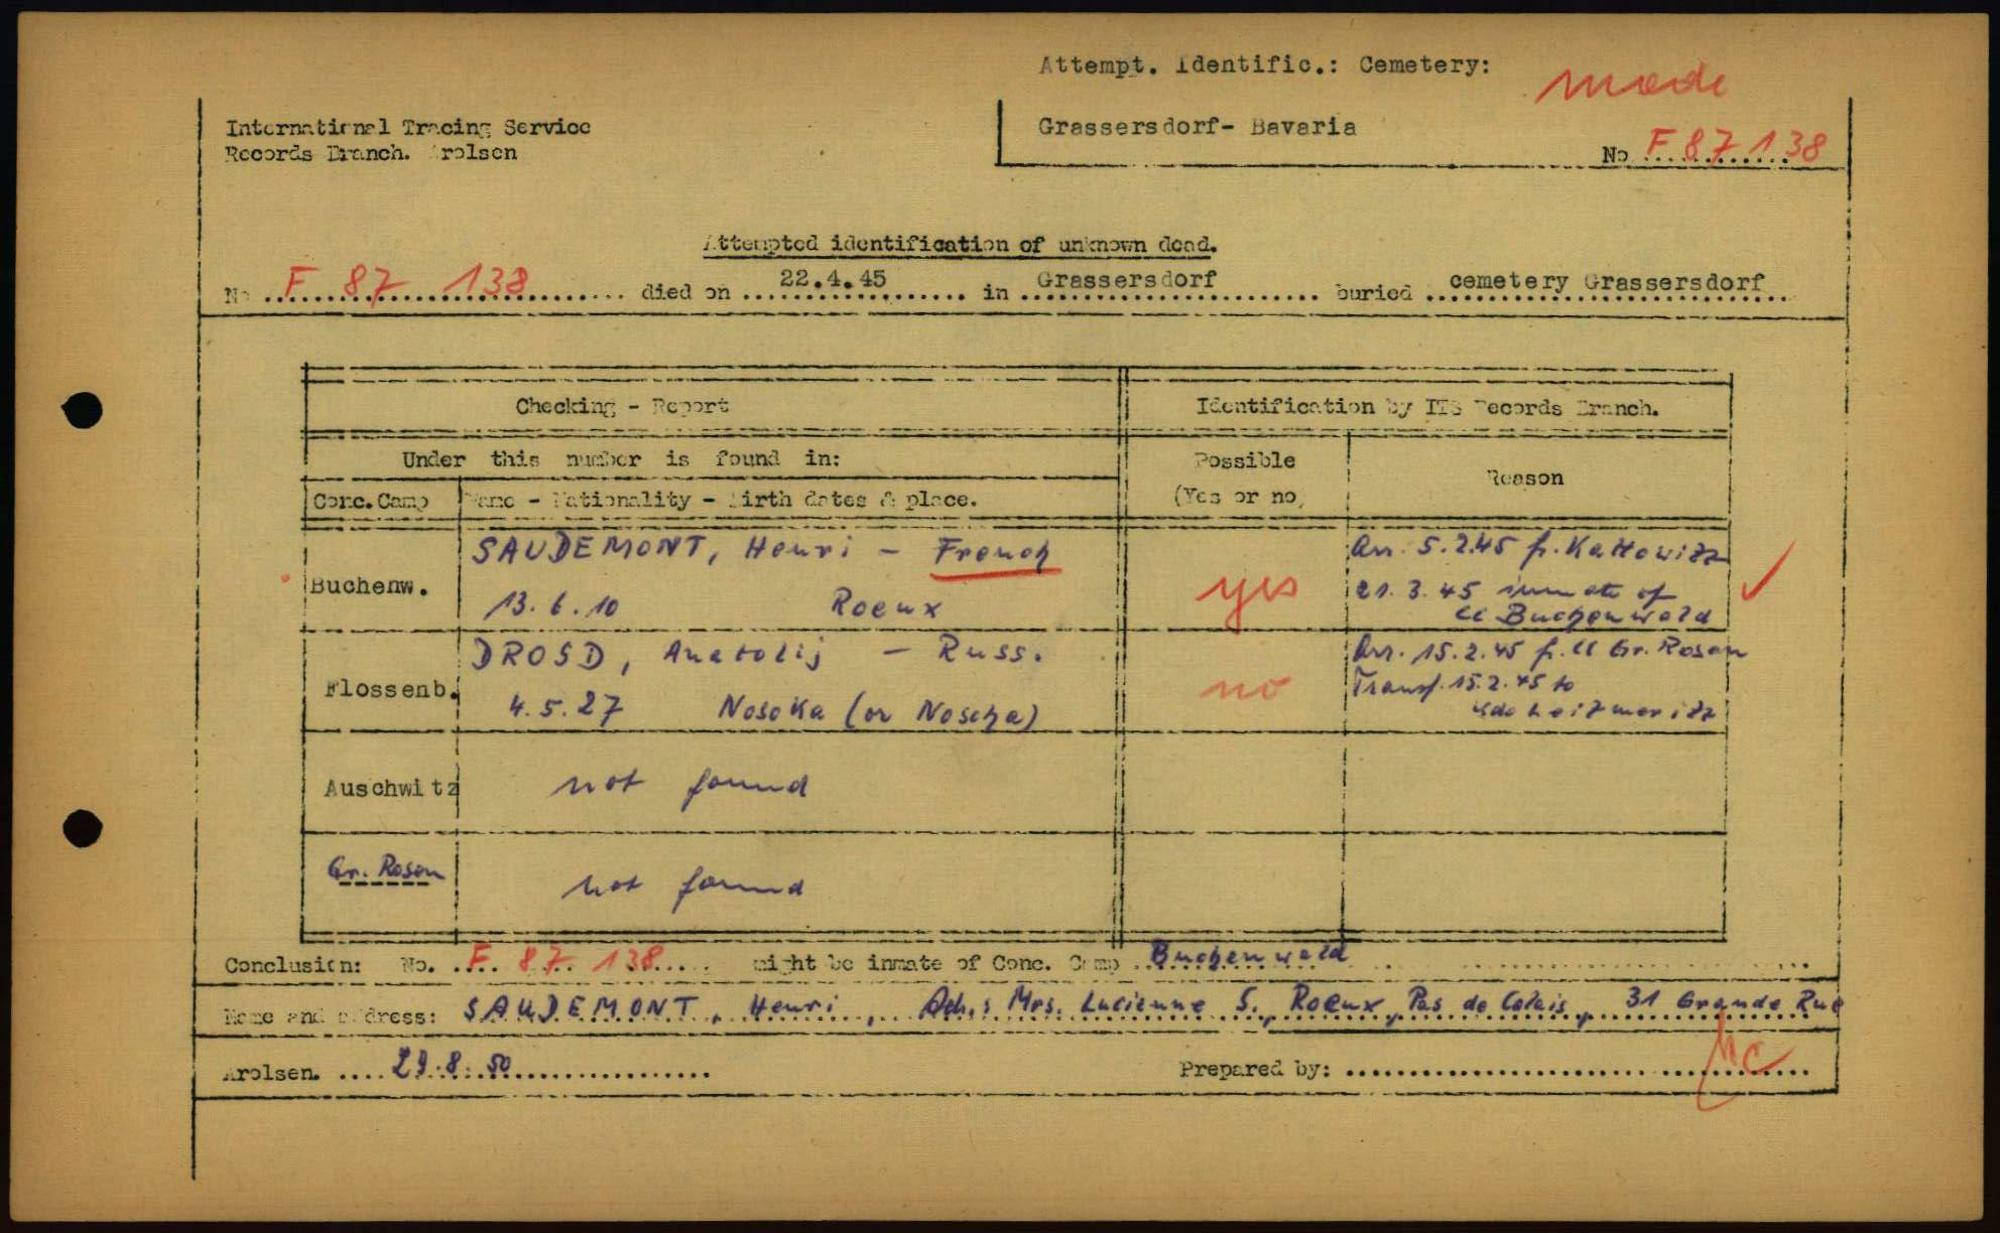 Attempt. Identific.: Cemetery:
made
International Tracing Service
Records Branch. Arolsen
Grassersdorf- Bavaria
No F 87 138
Attempted identification of unknown dead.
No F 87 138 died on 22.4.45 in Grassersdorf buried cemetery Grassersdorf
Checking - Report
Identification by ITS Records Branch.
Under this number is found in:
Possible
(Yes or no)
Reason
Conc.Camp
Name - Nationality - Birth dates & place.
Buchenw.
SAUDEMONT, Henri - French
13.6.10 Roeux
yes
Arr. 5.2.45 fr. Kattowitz
21.3.45 inmate of
CC Buchenwald
Flossenb.
DROSD, Anatolij - Russ.
4.5.27 Nosoka (or Noscha)
no
Arr. 15.2.45 fr. CC Gr. Rosen
Transf. 15.2.45 to
Kdo Leitmeritz
Auschwitz
not found
Gr. Rosen
not found
Conclusion: No. F 87 138 might be inmate of Conc. Camp Buchenwald
Name and address: SAUDEMONT, Henri, Adr.: Mrs. Lucienne S., Roeux, Pas de Calais, 31 Grande Rue
Arolsen. 29.8.50
Prepared by: